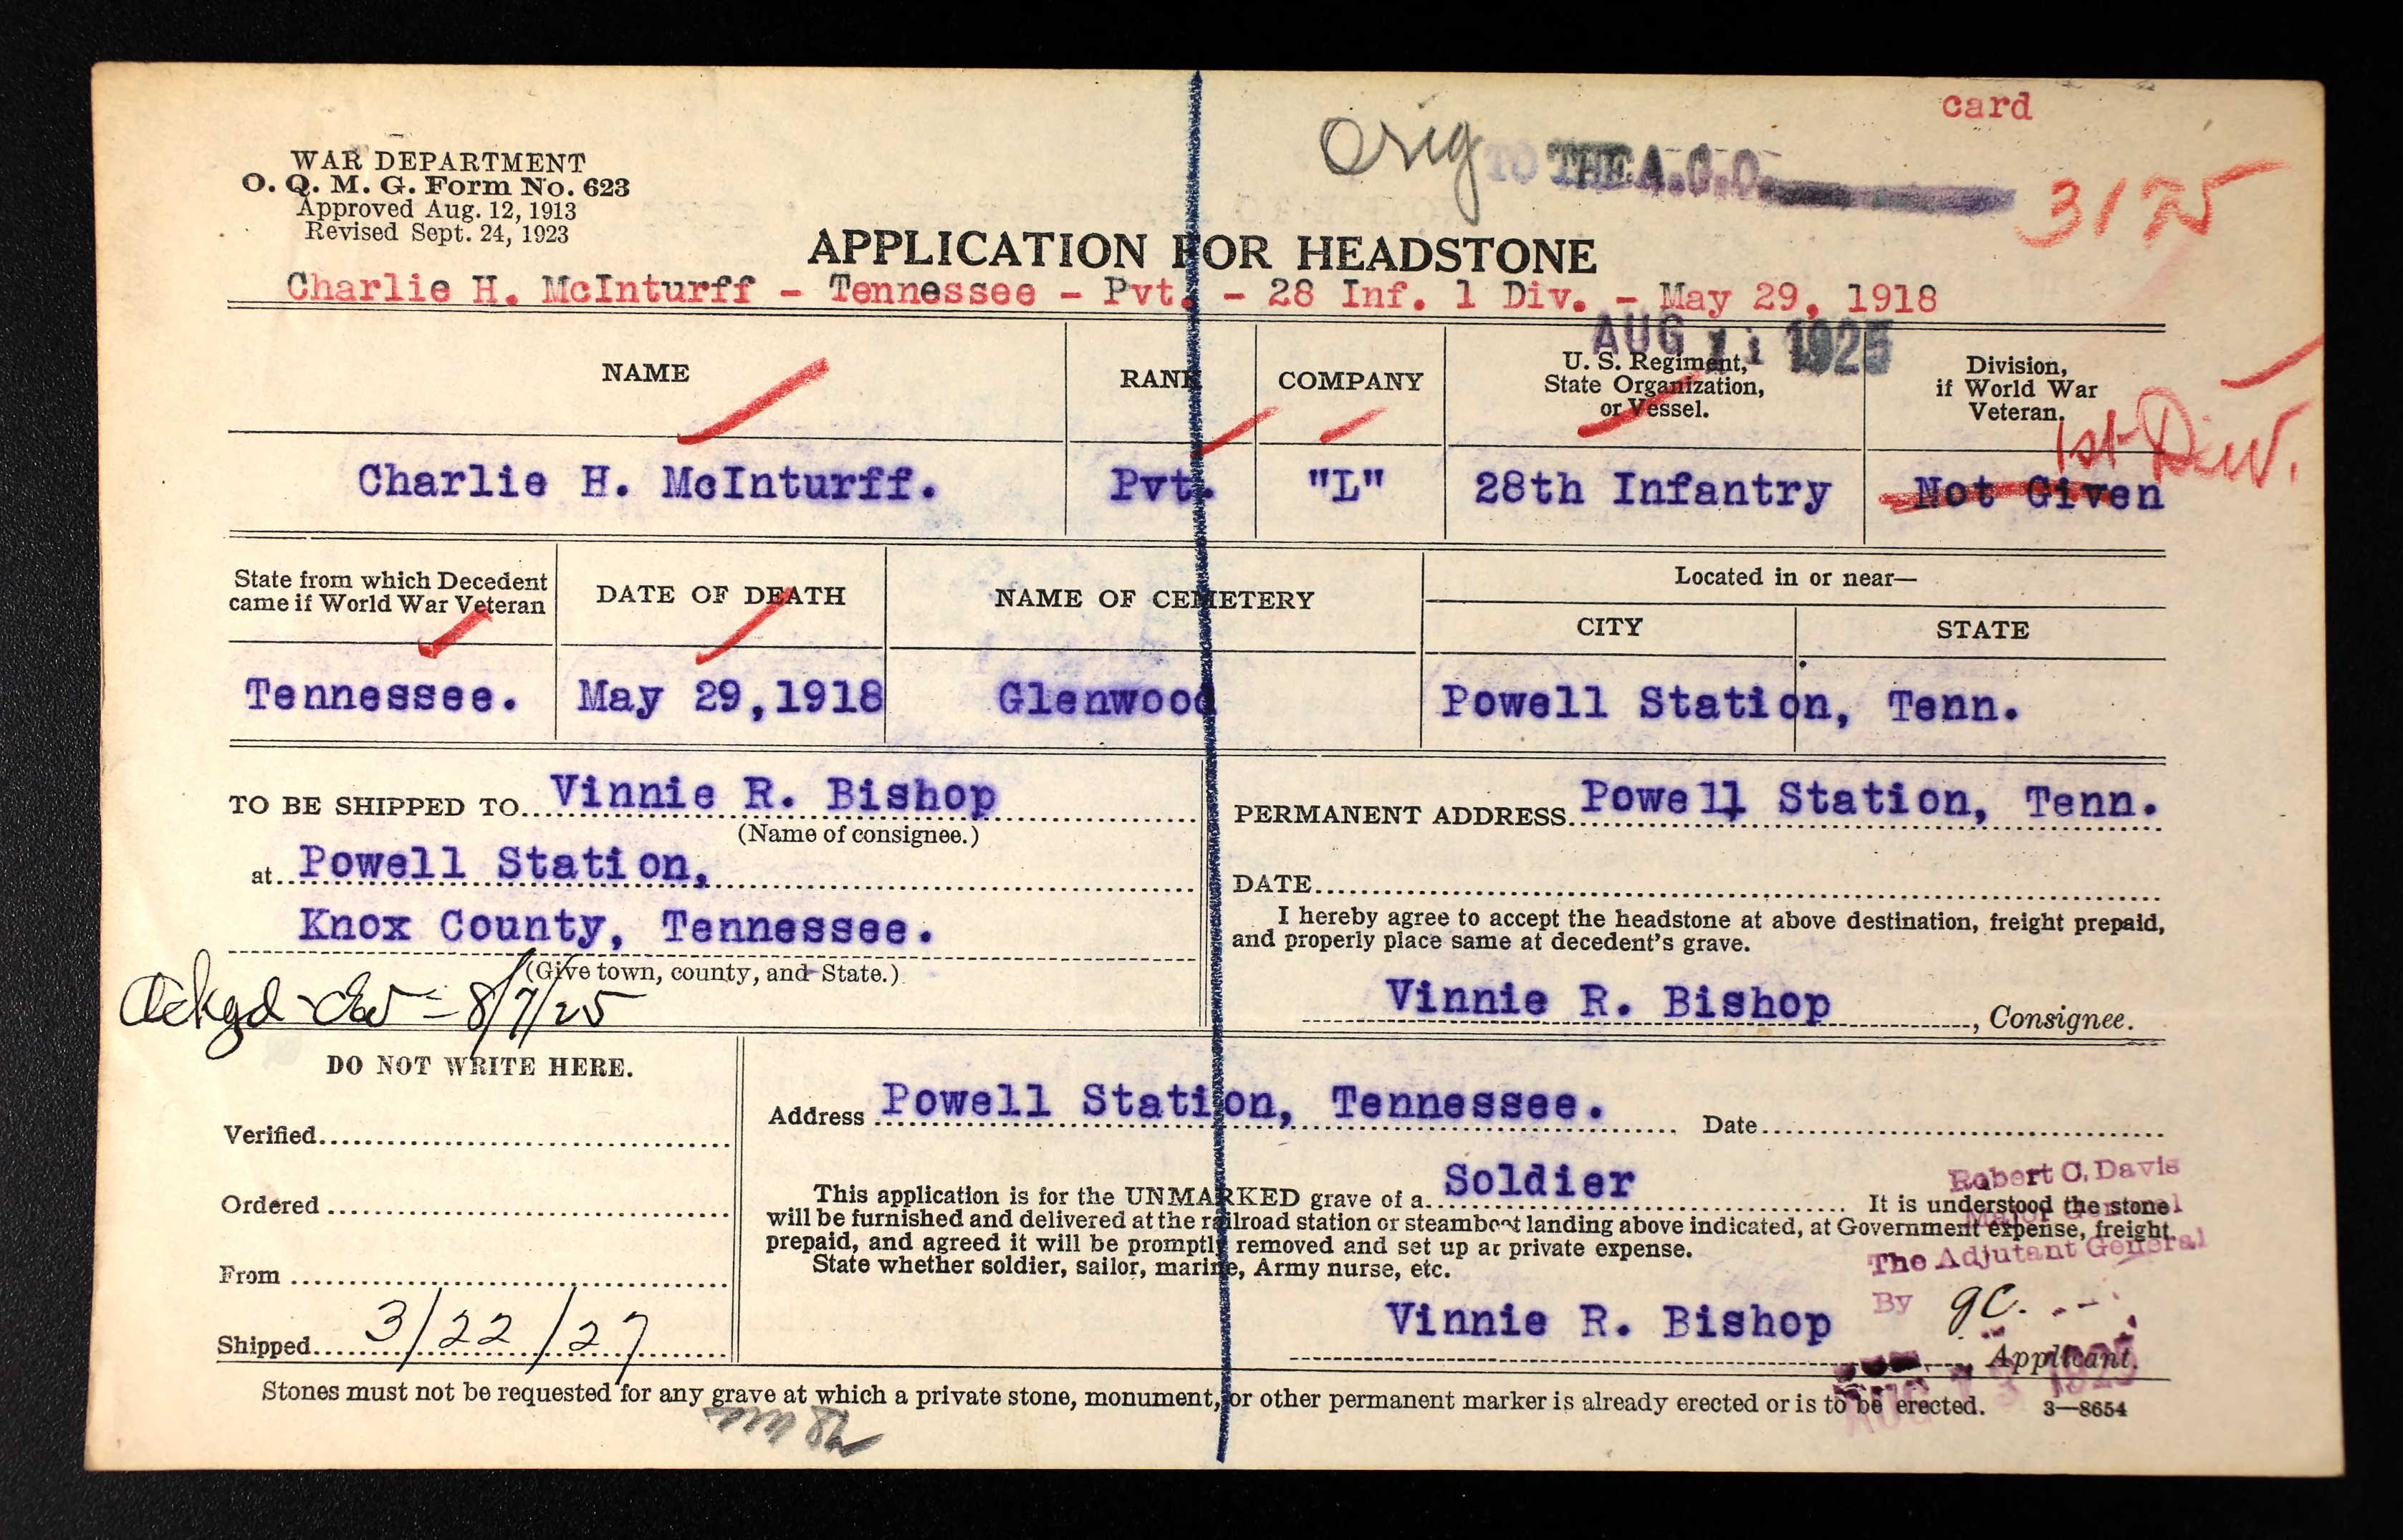 card
WAR DEPARTMENT
O. Q. M. G. Form No. 623
Approved Aug. 12, 1913
Revised Sept. 24, 1923
Orig TO THE A.G.O.
3125
APPLICATION FOR HEADSTONE
Charlie H. McInturff - Tennessee - Pvt. - 28 Inf. 1 Div. - May 29, 1918
AUG 11 1925
NAME
RANK
COMPANY
U. S. Regiment,
State Organization,
or Vessel.
Division,
if World War
Veteran.
1st Div.
Charlie H. McInturff.
Pvt.
"L"
28th Infantry
Not Given
State from which Decedent
came if World War Veteran
DATE OF DEATH
NAME OF CEMETERY
Located in or near—
CITY
STATE
Tennessee.
May 29, 1918
Glenwood
Powell Station, Tenn.
TO BE SHIPPED TO Vinnie R. Bishop
(Name of consignee.)
at Powell Station,
Knox County, Tennessee.
(Give town, county, and State.)
Ackgd 8/7/25
PERMANENT ADDRESS Powell Station, Tenn.
DATE
I hereby agree to accept the headstone at above destination, freight prepaid,
and properly place same at decedent's grave.
Vinnie R. Bishop, Consignee.
DO NOT WRITE HERE.
Verified
Ordered
From
Shipped 3/22/27
Address Powell Station, Tennessee. Date
This application is for the UNMARKED grave of a Soldier It is understood the stone
will be furnished and delivered at the railroad station or steamboat landing above indicated, at Government expense, freight
prepaid, and agreed it will be promptly removed and set up at private expense.
State whether soldier, sailor, marine, Army nurse, etc.
Robert C. Davis
Major General
The Adjutant General
By gc.
Vinnie R. Bishop
Applicant.
AUG 13 1925
Stones must not be requested for any grave at which a private stone, monument, or other permanent marker is already erected or is to be erected.
3—8654